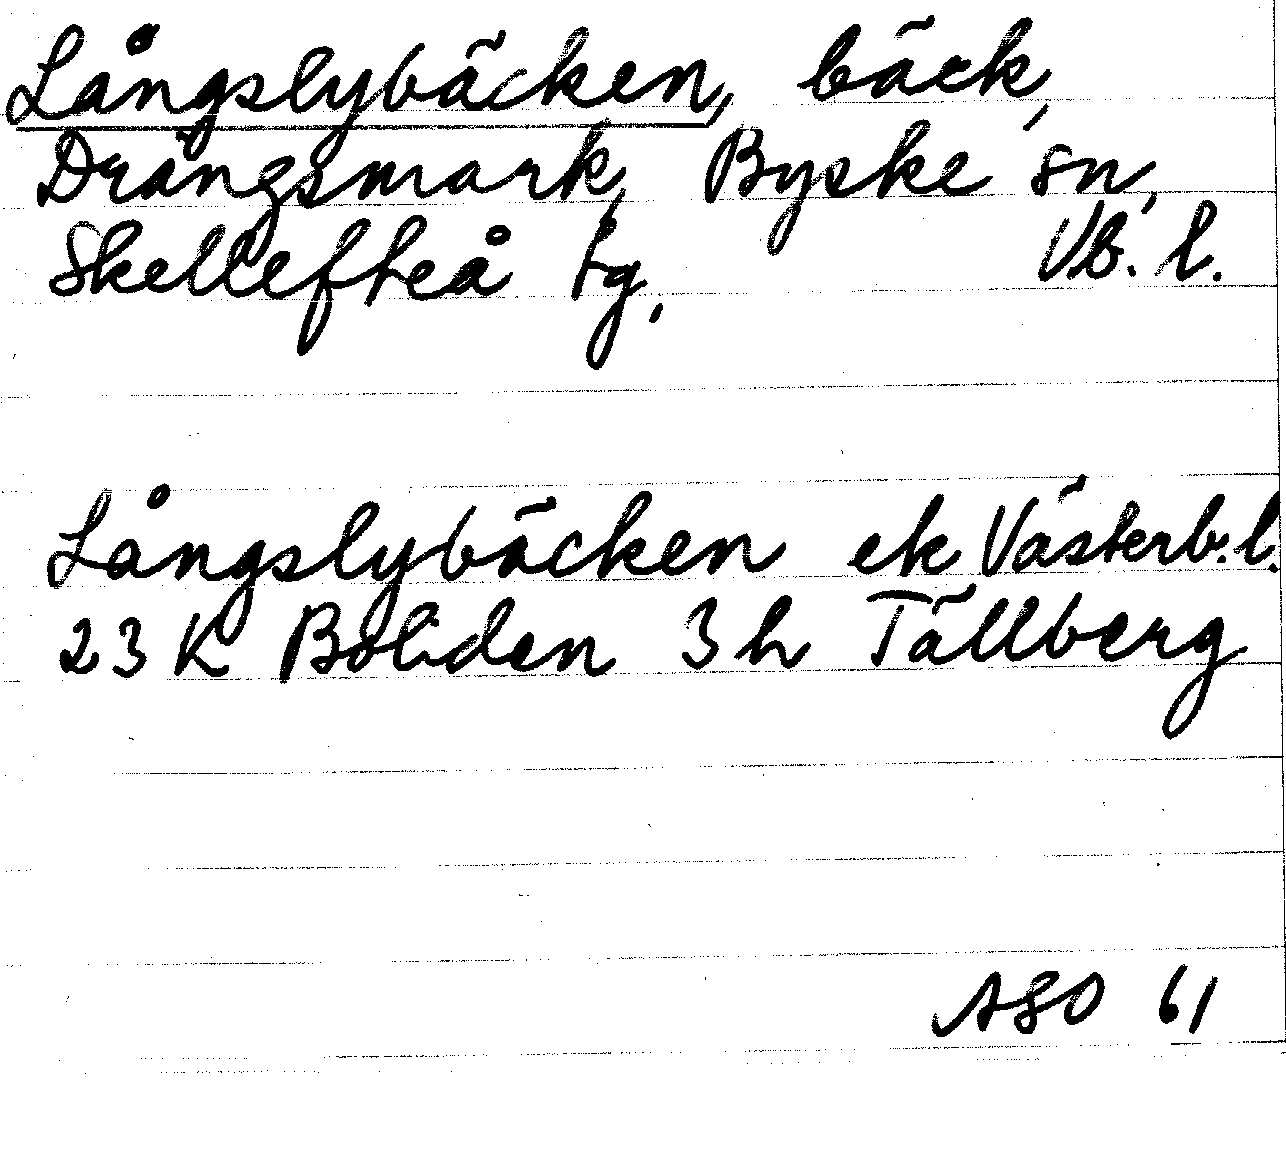 Långslybäcken, bäck,
Drängsmark, Byske sn,
Skellefteå tg, Vb. l.
Långslybäcken ek Västerb. l.
23 K Boliden 3 h Tällberg
ASO 61